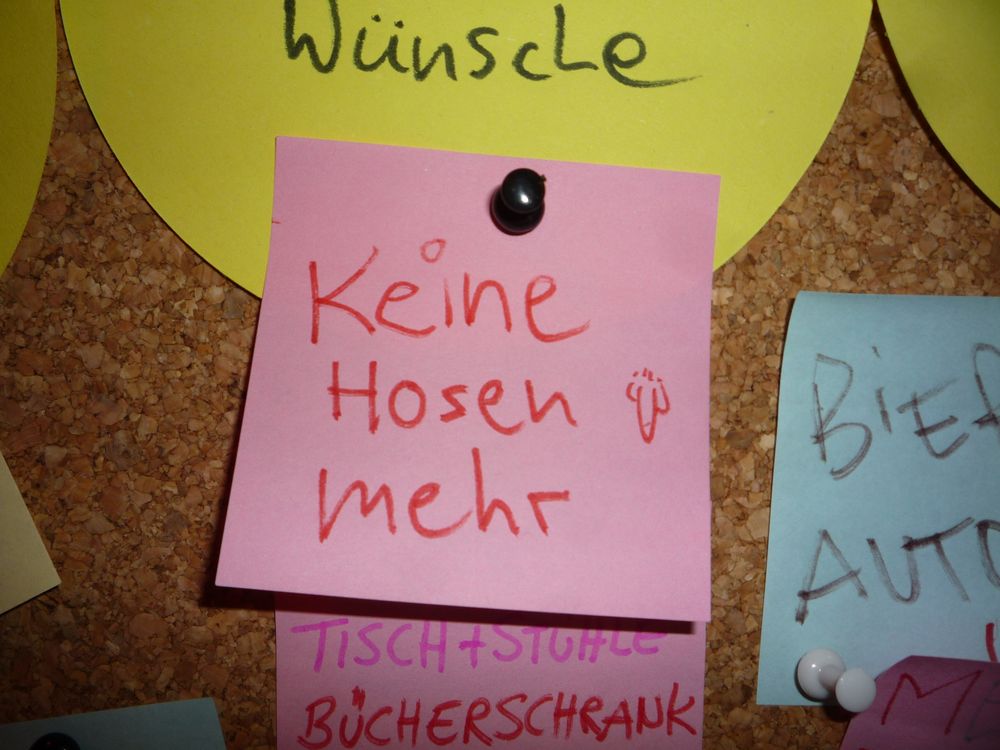 Wünsche
Keine
Hosen
mehr
TISCH + STÜHLE
BÜCHERSCHRANK